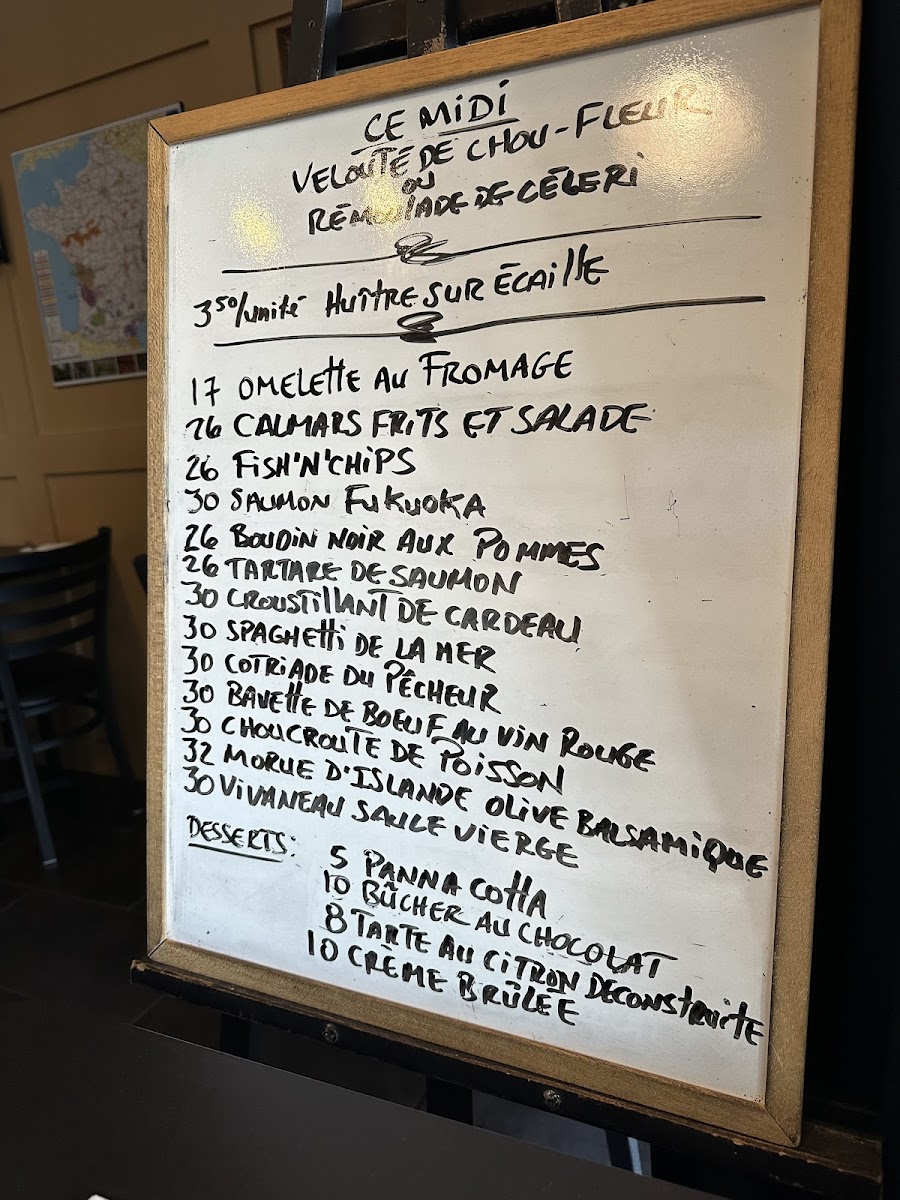 CE MIDI
VELOUTÉ DE CHOU-FLEUR
OU
RÉMOULADE DE CÉLERI
3⁵⁰/unité HUÎTRE SUR ÉCAILLE
17 OMELETTE AU FROMAGE
26 CALMARS FRITS ET SALADE
26 FISH'N'CHIPS
30 SAUMON FUKUOKA
26 BOUDIN NOIR AUX POMMES
26 TARTARE DE SAUMON
30 CROUSTILLANT DE CARDEAU
30 SPAGHETTI DE LA MER
30 COTRIADE DU PÊCHEUR
30 BAVETTE DE BOEUF AU VIN ROUGE
30 CHOUCROUTE DE POISSON
32 MORUE D'ISLANDE OLIVE BALSAMIQUE
30 VIVANEAU SAUCE VIERGE
DESSERTS:
5 PANNA COTTA
10 BÛCHER AU CHOCOLAT
8 TARTE AU CITRON DÉCONSTRUITE
10 CRÈME BRÛLÉE